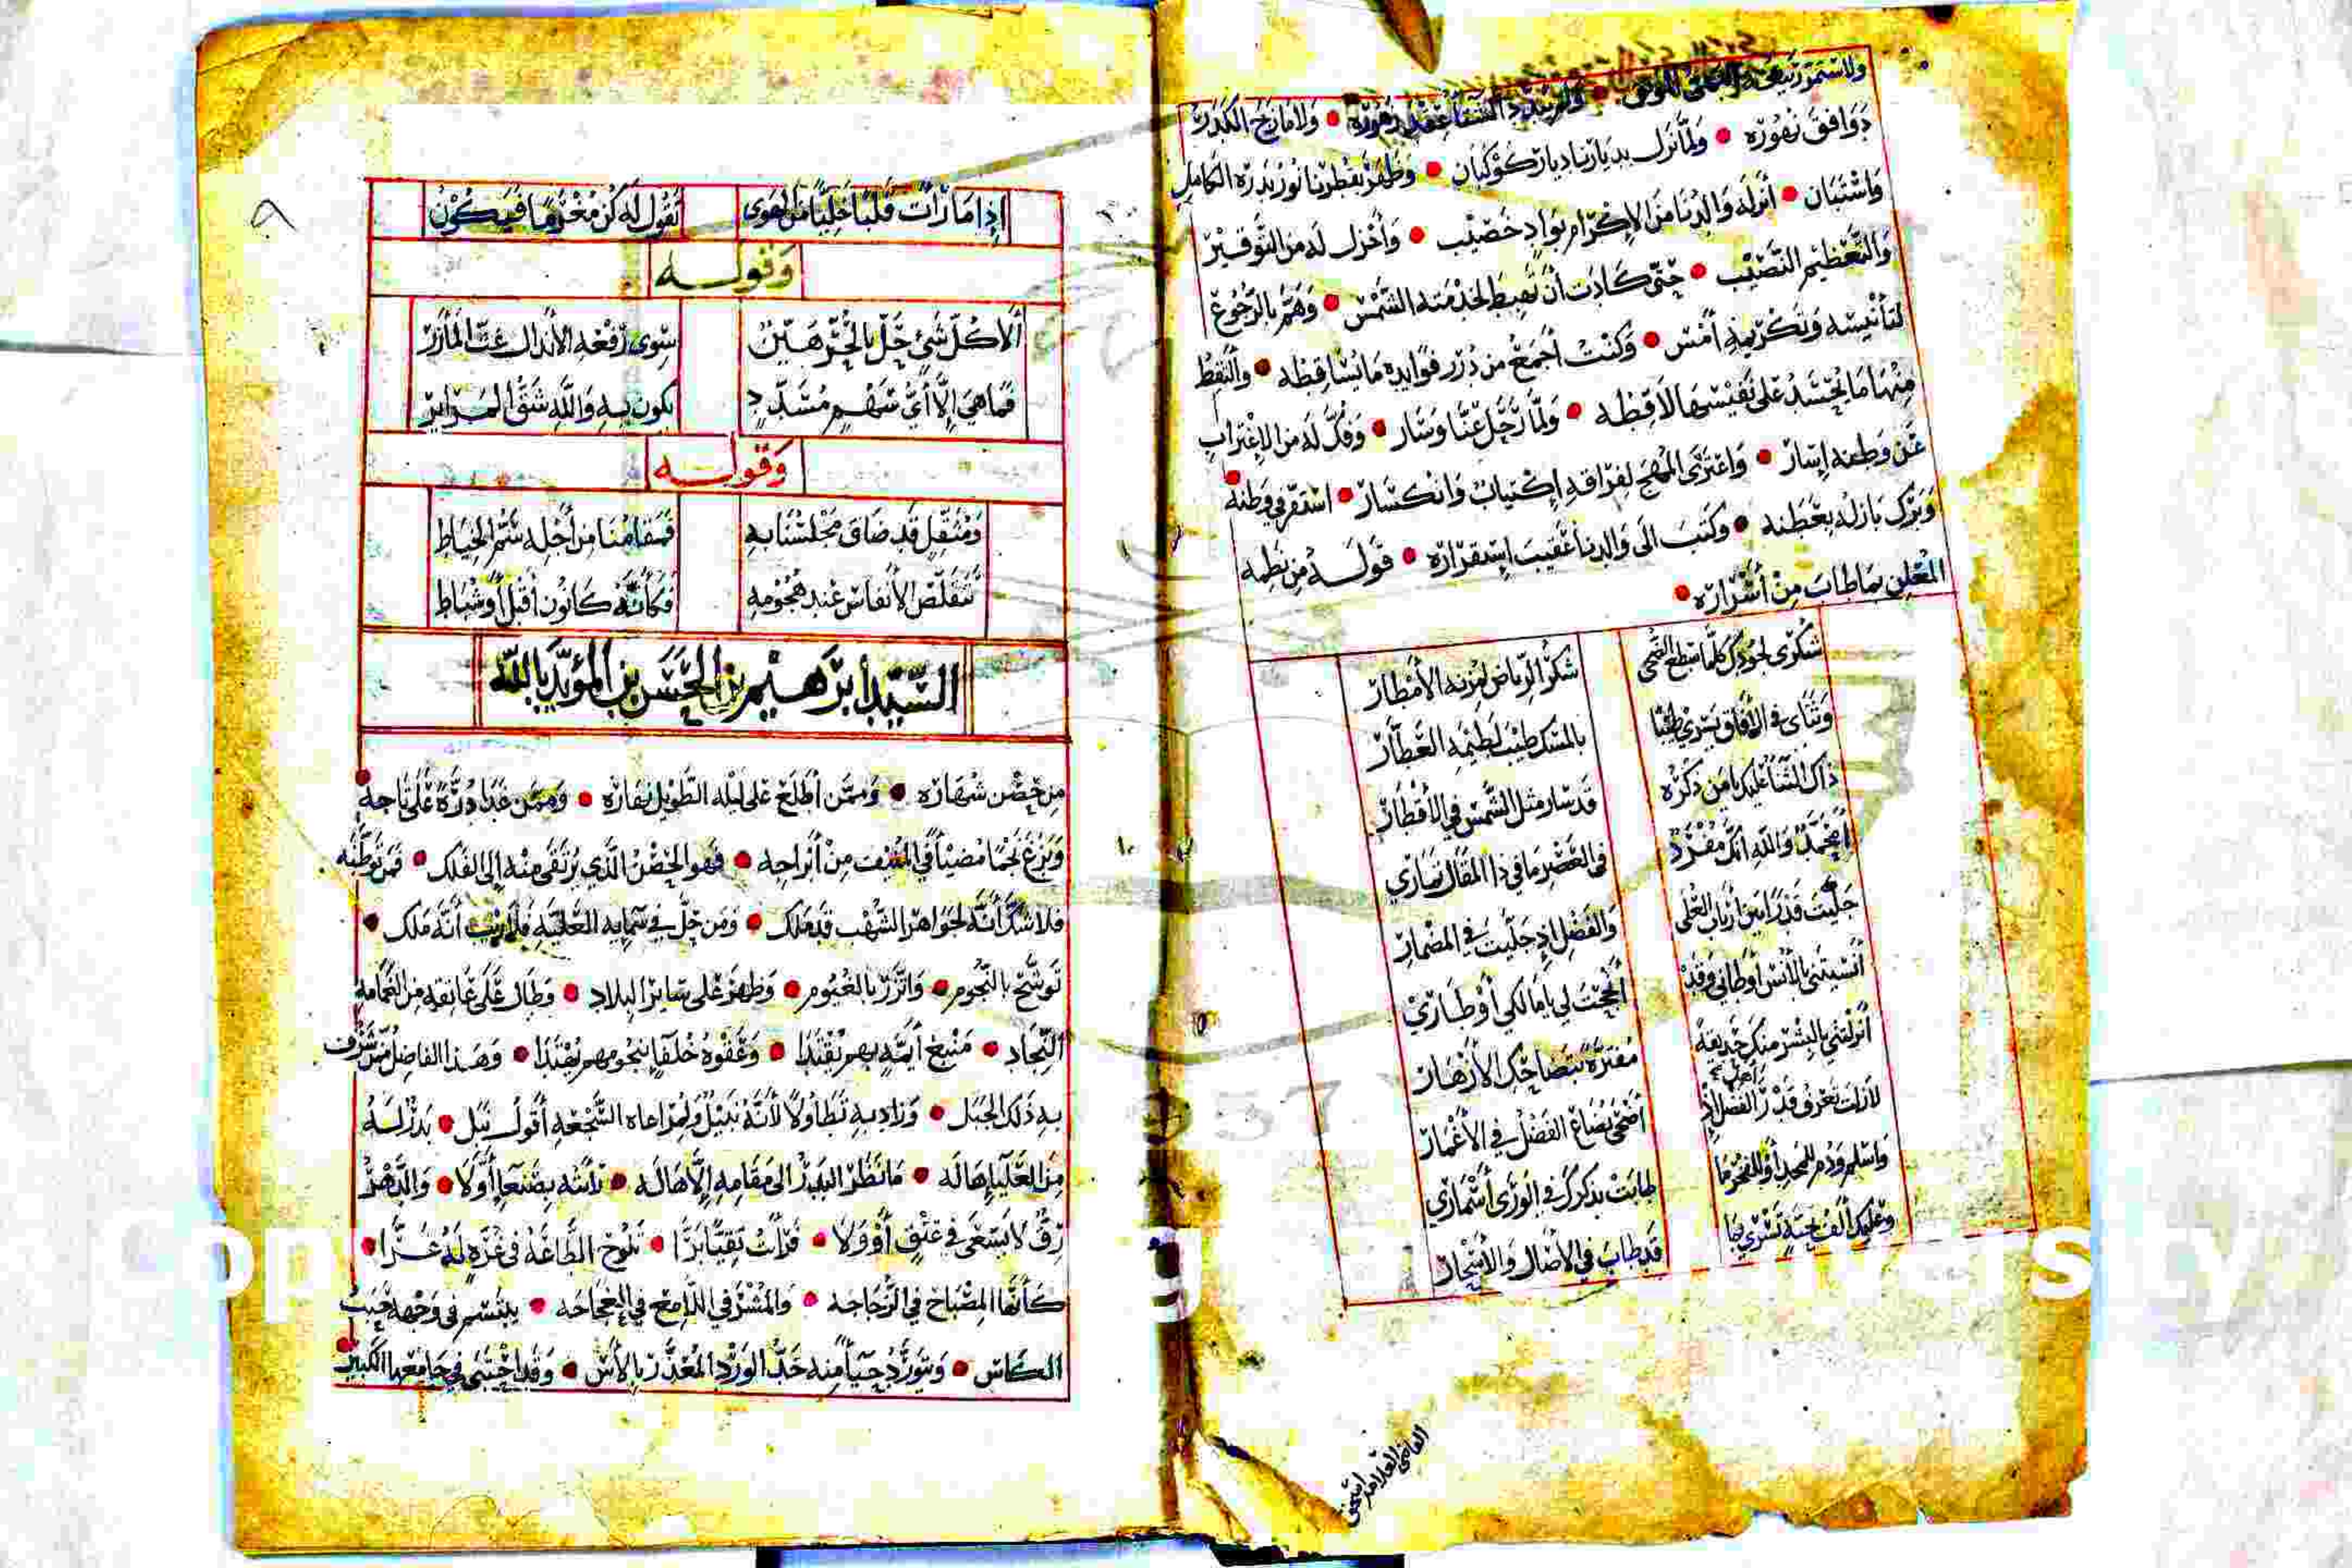 دوافق نهوره • ولما نزل بديارنا ديار كوكبان • وظهر بقطرنا نور بدره الكامل
واستبان • أنزله والدنا من الإكرام بواد خصيب • وأجزل له من التوقير
والتعظيم النصيب • حتى كادت أن تهبط لخدمته الشمس • وهم بالرجوع
لتأنيسه وتكريمه أمس • وكنت أجمع من درر فوايده ما تساقطه • والتقط
منها ما يحسد على نفيسها لاقطه • ولما رحل عنا وسار • وفك له من الإغتراب
عن وطنه إسار • واعترى المهج لفراقه إكتياب وانكسار • استقر في وطنه
وبرك بازله بعطنه • وكتب الى والدنا عقيب إستقراره • قوله من نظمه
المعلن بما طاب من أسراره •
شكرى لجودك كلما سطع الضحى شكر الرياض لمزنه الأمطار
وثناى في الآفاق يسري طيبا بالمسك طيب لطيمه العطار
ذاك الثنا عليك يا من ذكره قد سار مثل الشمس في الأقطار
أمحمد والله انك مفرد في العصر ما في ذا المقال تماري
جليت قدرا بين أرباب العلى والفضل إذ جليت في المضمار
أنسيتني بالأنس أوطاني وقد أنجحت لي يا مالكي أوطاري
أنزلتني بالبشر منك حديقة مفترة بتضاحك الأزهار
لازلت تعرف قدر أهل الفضل إذ أضحى يضاع الفضل في الأغمار
واسلم ودم للمجد أو للفخر ما طابت بذكرك في الورى أسماري
وعليك ألف تحية تسري بها قد طاب في الآصال والأسحار
القاضي العلامه اسحق
٨
إذا ما رأت قلبا خليا من الهوى تقول له كن مغرما فيكون
وقوله
ألا كل شئ حل بالحر هين سوى رفعه الأنذال عند المآزر
فما هي إلا أي سهم مسدد يكون به والله شق المراير
وقوله
ومثقل قد ضاق مجلسنا به فمقامنا من أجله سم الخياط
تتقلص الأنفاس عند هجومه فكأنه كانون أقبل أو شباط
السيد إبرهيم بن الحسن بن المؤيد بالله
من حصن شهاره • وممن أطلع على ليله الطويل نهاره • وممن غدا درة على تاجه •
وبزغ نجما مضيئا في المنيف من أبراجه • فهو الحصن الذي يرتقى منه إلى الفلك • فمن توطنه
فلا شك أنه لجواهر الشهب قد ملك • ومن حل في سمايه العليه فلا ريب أنه ملك •
توشح بالنجوم • واتزر بالغيوم • وظهر على ساير البلاد • وطال على عاتقه من الغمامه
النجاد • منبع أيمة بهم يقتدا • وعفوه خلقا بنجومهم يهتدا • وهذا الفاضل ممن شرف
به ذلك الجبل • وزاد به تطاولا لأنه نبيل ولمراعاه السجعه أقول نبل • بدر له
من العليا هاله • ما نظر البدر الى مقامه إلا هاله • رأيته بصنعا أولا • والدهر
رق لا يسعى في عتق أو ولا • فرأت تقيا برا • تلوح الطاعة في غرة له غرا •
كأنها المصباح في الزجاجه • والمشتري اللامع في العجاجه • يبتسم في وجهه حبب
الكاس • ويتورد حيآ منه خد الورد المعذر بالآس • وقد اجتبى في جامعها الكبير •